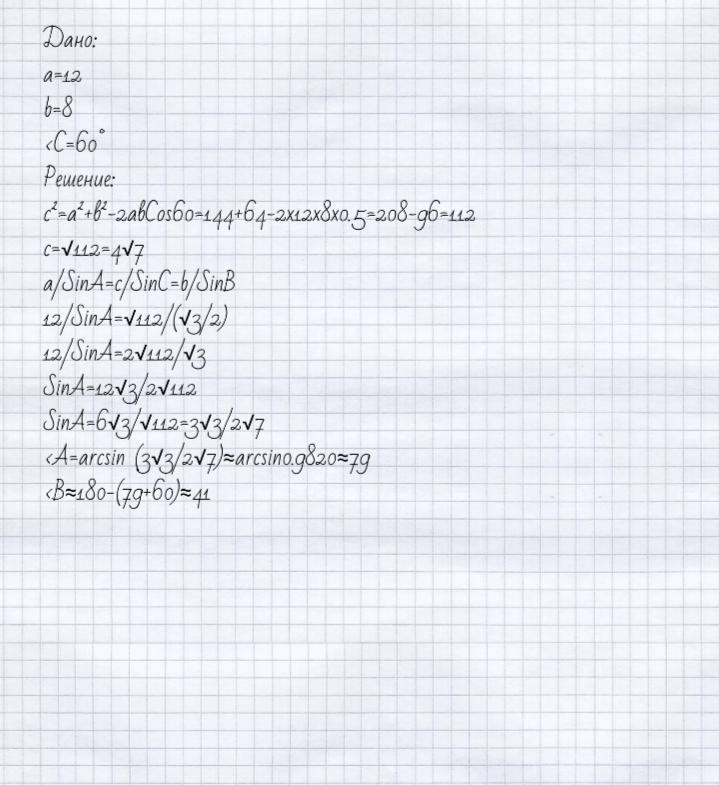 Дано:
a=12
b=8
<C=60°
Решение:
c²=a²+b²-2abCos60=144+64-2x12x8x0.5=208-96=112
c=√112=4√7
a/SinA=c/SinC=b/SinB
12/SinA=√112/(√3/2)
12/SinA=2√112/√3
SinA=12√3/2√112
SinA=6√3/√112=3√3/2√7
<A=arcsin (3√3/2√7)≈arcsin0.9820≈79
<B≈180-(79+60)≈41